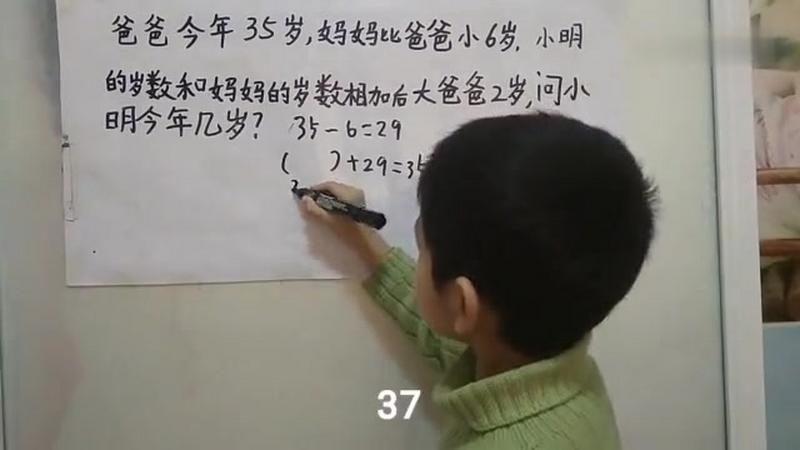 爸爸今年35岁,妈妈比爸爸小6岁.小明
的岁数和妈妈的岁数相加后大爸爸2岁,问小
明今年几岁?
35-6=29
( )+29=35
37